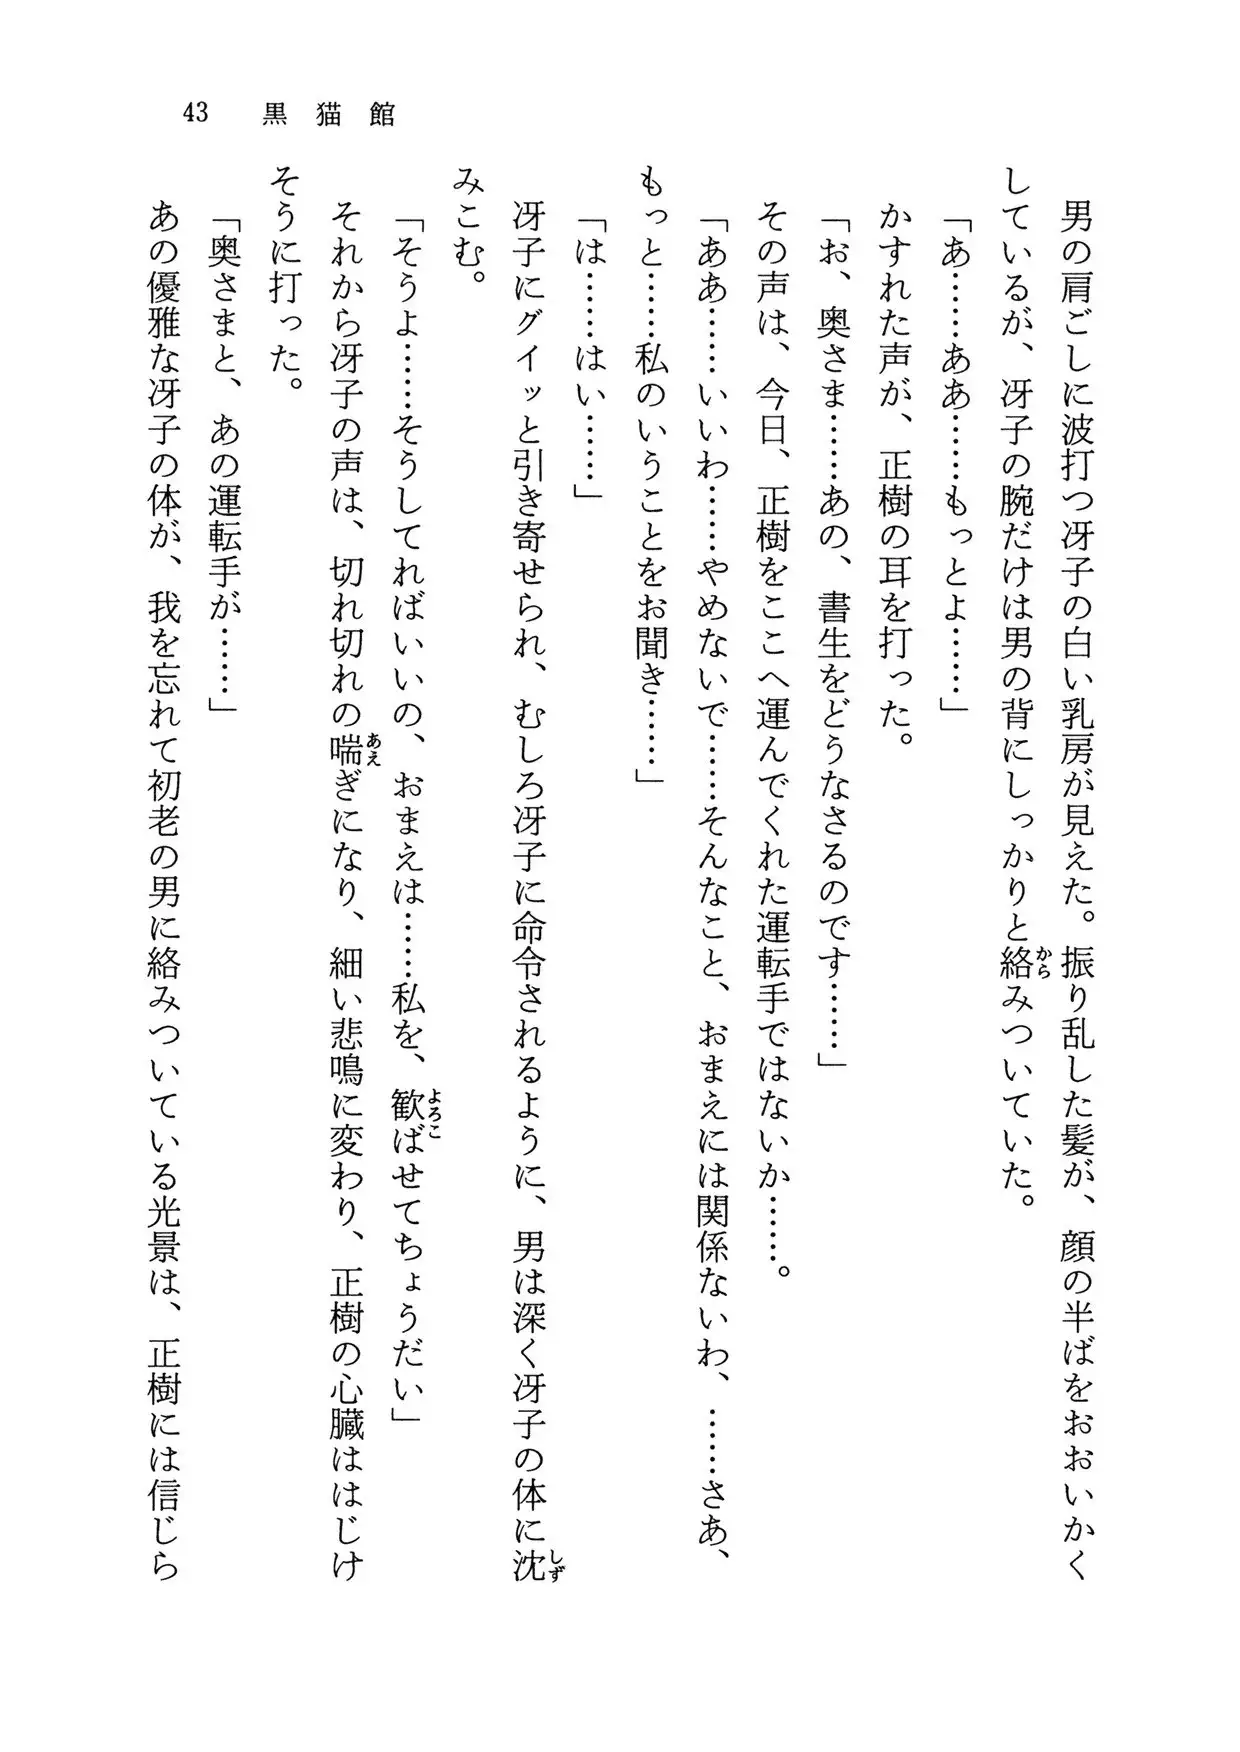 43 黒猫館
男の肩ごしに波打つ冴子の白い乳房が見えた。振り乱した髪が、顔の半ばをおおいかく
しているが、冴子の腕だけは男の背にしっかりと絡みついていた。
「あ……ああ……もっとよ……」
かすれた声が、正樹の耳を打った。
「お、奥さま……あの、書生をどうなさるのです……」
その声は、今日、正樹をここへ運んでくれた運転手ではないか……。
「ああ……いいわ……やめないで……そんなこと、おまえには関係ないわ、……さあ、
もっと……私のいうことをお聞き……」
「は……はい……」
冴子にグイッと引き寄せられ、むしろ冴子に命令されるように、男は深く冴子の体に沈
みこむ。
「そうよ……そうしてればいいの、おまえは……私を、歓ばせてちょうだい」
それから冴子の声は、切れ切れの喘ぎになり、細い悲鳴に変わり、正樹の心臓ははじけ
そうに打った。
「奥さまと、あの運転手が……」
あの優雅な冴子の体が、我を忘れて初老の男に絡みついている光景は、正樹には信じら